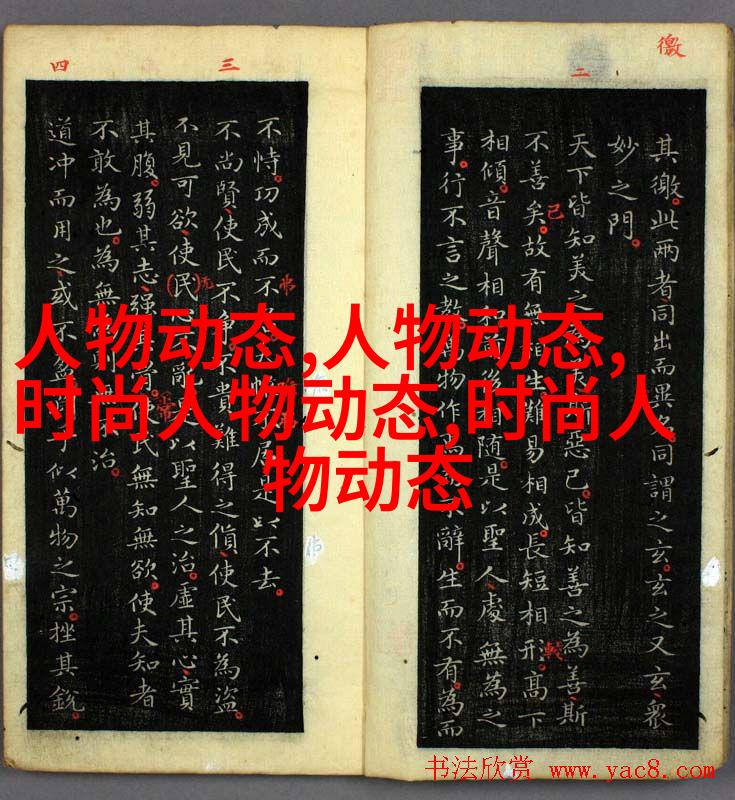 徼
二
其徼。此两者同出而異名同謂之玄。玄之又玄眾
妙之門。
天下皆知美之 惡已。皆知善之為善斯
不善矣。故有無相生難易相成。長短相形。高下
相傾。音聲相和 後相隨。是以聖人處無為之
事。行不言之教。萬物作焉 不辭。生而不有。為而
三
四
不恃。功成而不 居是以不去。
不尚賢使民不爭不貴難得之貨使民不為盜。
不見可欲使民 亂是以聖人之治。虛其心實
其腹。弱其志。强其骨 使民無知無欲。使夫知者
不敢為也。為無 無不治。
道冲而用之或不盈 似萬物之宗。挫其銳。
人物动态,人物动态,
时尚人物动态,时尚人
物动态
书法欣赏 www.yac8.com